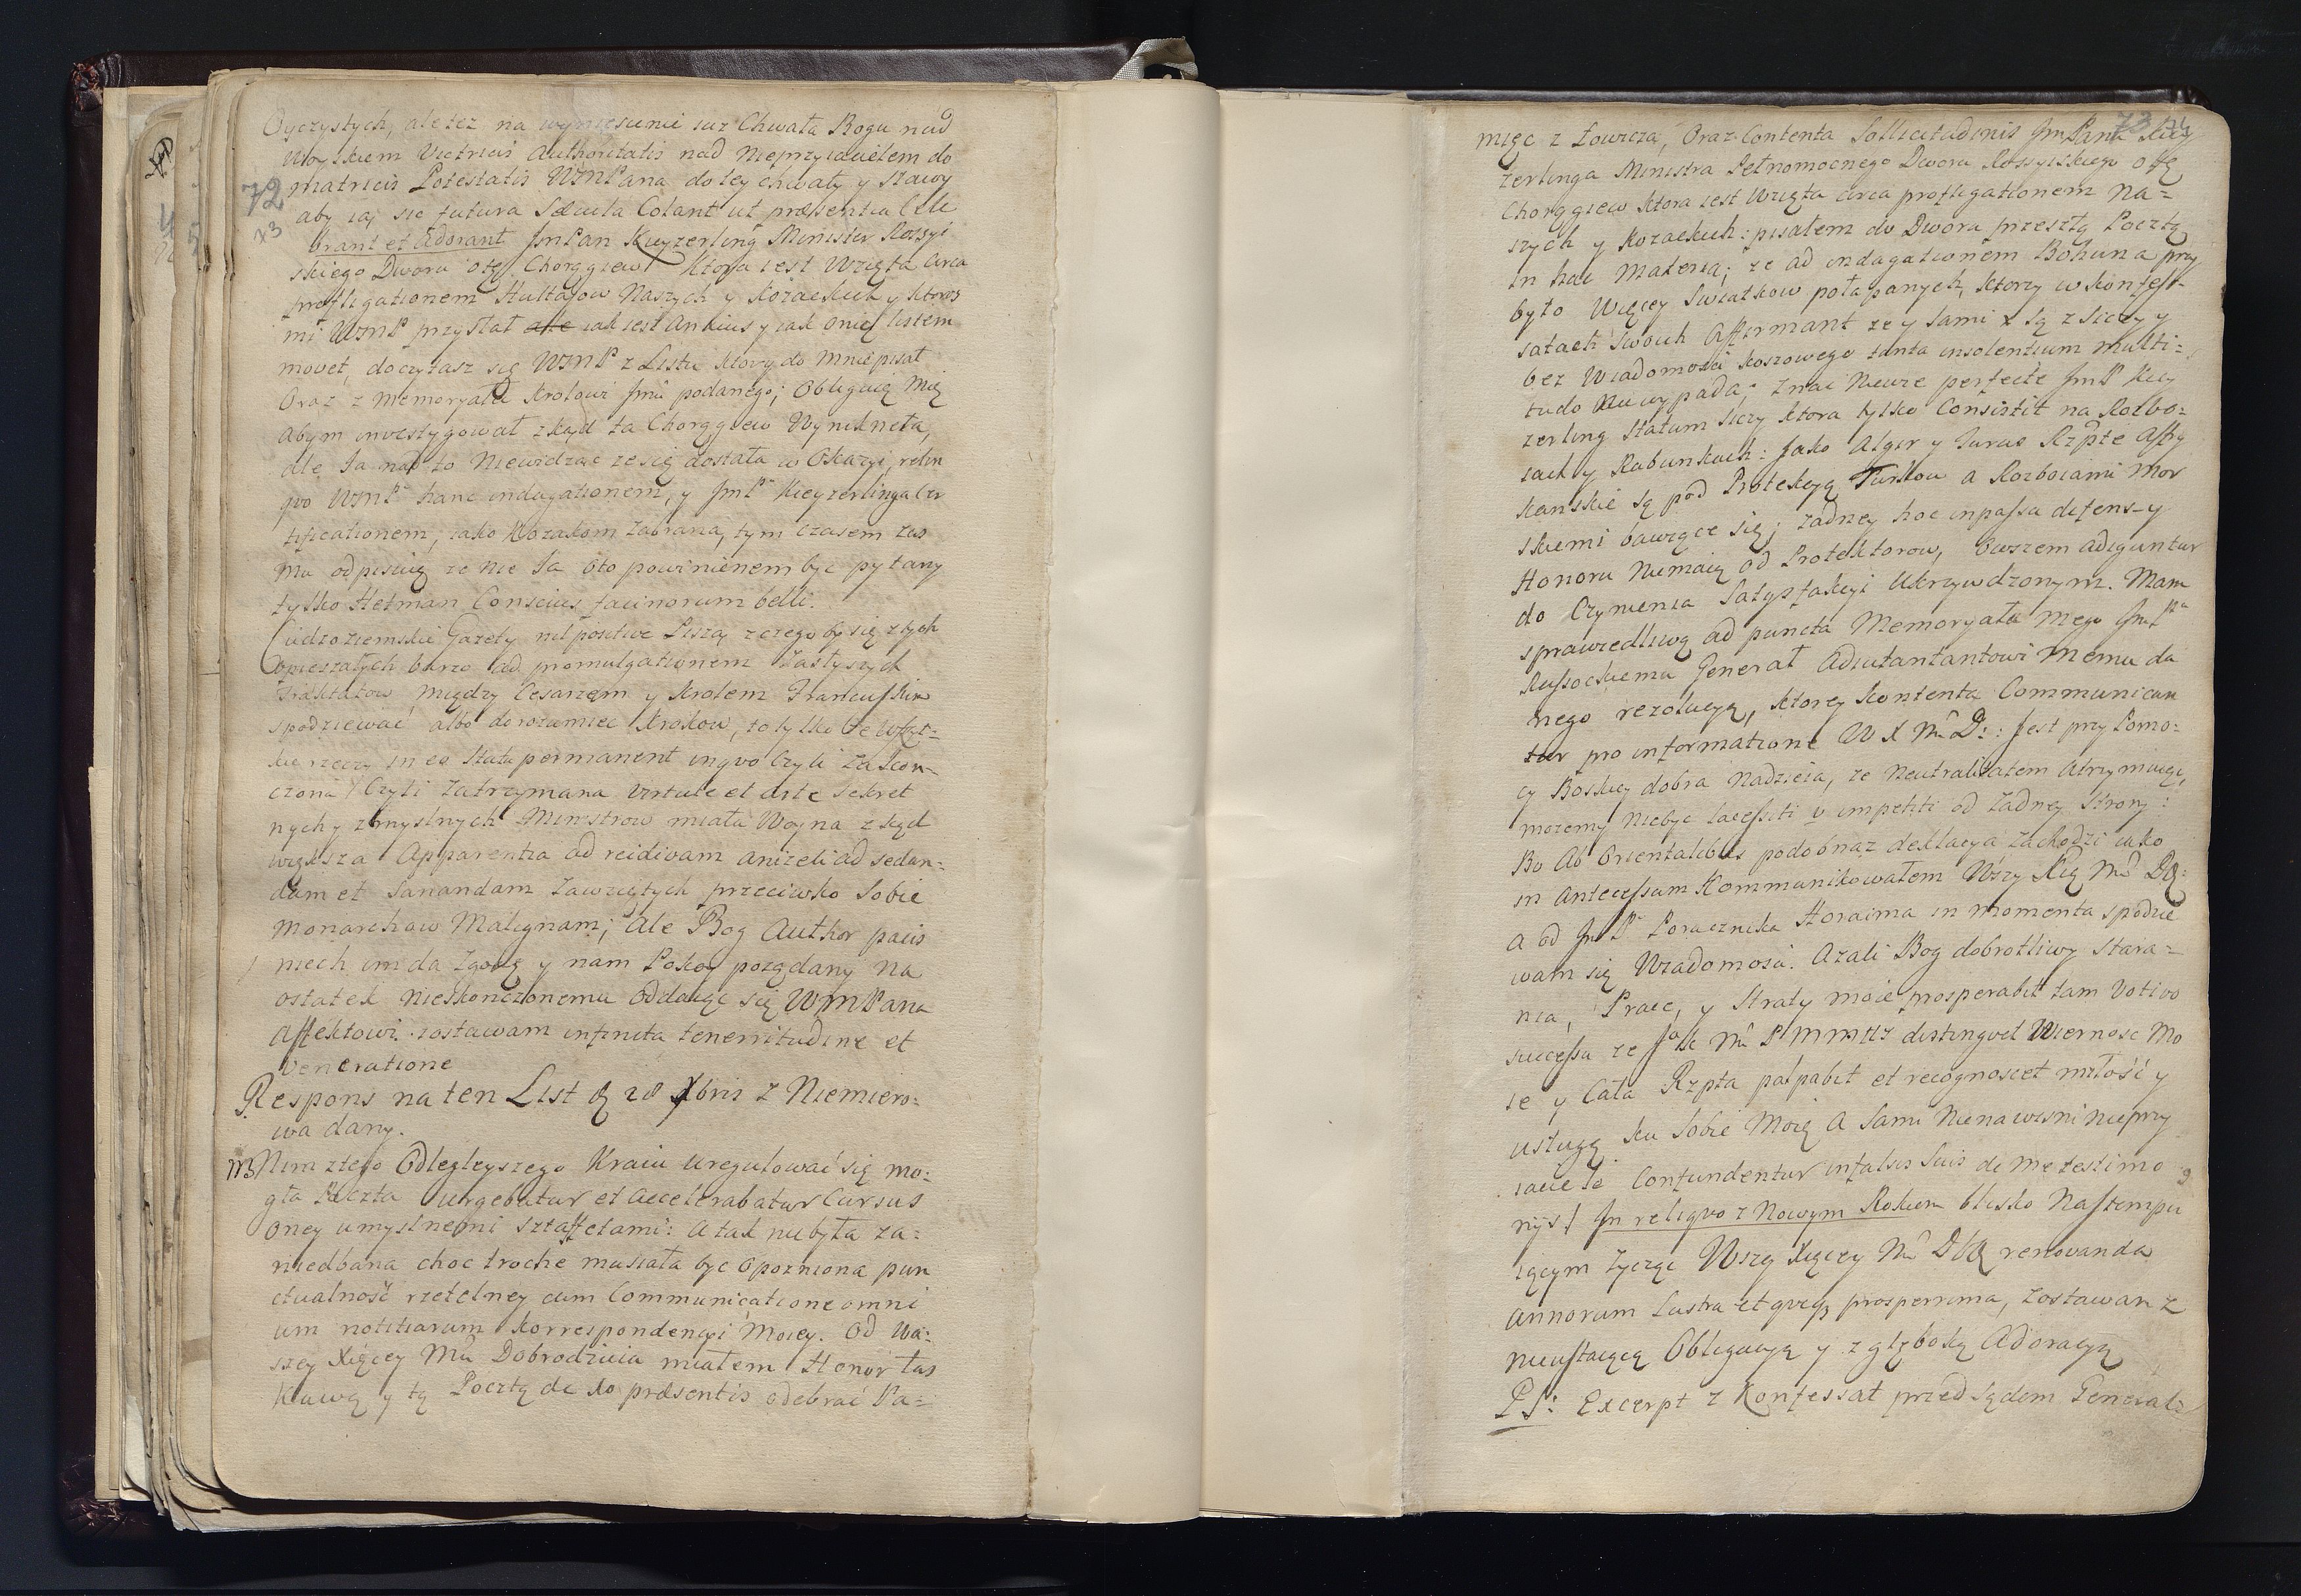 72
Oyczystych, ale tez na wyniesienie iuz Chwała Bogu nad
woyskiem Victricis Authoritatis nad Nieprzyiacielem do
matricis Potestatis WMPana do tey chwały y sławy
aby iaj sie futura Sæcula Colant ut præsentia Cele
brant et Adorant JmPan Kieyzerling Minister Rossyi
skiego Dwora o tę Chorągiew Ktora iest Wzięta circa
profligationem Hultaiow Naszych y Kozackich y ktorą
mi WMP przysłał iak iest Anxius y iak onię listem
movet, doczytasz się WMP z Listu ktory do mnie pisał
Oraz z Memoryału Krolowi Jmci podanego; Obliguią mię
abym investygował zkąd ta Chorągiew Wyniknęła,
ale Ja nad to Niewidząc ze się dostała w Okazyi, relin
quo WMP hanc indagationem, y JmP Kieyzerlinga Cer
tificationem, iako Kozakom zabrana, tym czasem zas
Mu odpisuię ze nie Ja oto powinienem byc pytany
tylko Hetman Conscius facinorum belli.
Cudzoziemskie Gazety nil positive Piszą z czego by się z tych
opieszałych barzo ad promulgationem Zaszłyszych
Traktatow między Cesarzem y Krolem Francuskim
spodziewać albo dorozumiec Krokow, to tylko ze wszyt-
kie rzeczy in eo Statu permanent in quo Czyli Zakon-
czona Czyli Zatrzymana virtute et arte Sekret
nych y zmyslnych Ministrow miała Woyna zkąd
większa Apparentia ad reidivam anizeli ad sedan-
dam et Sanandam Zawziętych przeciwko Sobie
Monarchow Malignam; Ale Bog Author pacis
niech im da Zgodę y nam Pokoy poządany Na
ostatek nieskonczonemu oddaiąc się WMPana
Affektowi zostawam infinita teneritudine et
veneratione
Respons na ten List 28 Xbris z Niemiero-
wa dany.
113 Nim z tego Odległeyszego Kraiu uregulować się mo-
gła Poczta urgebatur et accelerabatur Cursus
oney umyslnemi sztaffetami: A tak nie była za-
niedbana choc troche musiała byc opozniona pun
ctualność rzetelney cum Communicatione omni
um notitiarum Korrespondencyi Moiey. Od Wa-
szey Xiącey Mci Dobrodzieia miałem Honor łas
kawą y tą Pocztą de 10 præsentis odebrać Pa-
73
mięc z Łowicza, Oraz Contenta Sollicitudinis JmPana Kiey
zerlinga Ministra Pełnomocnego Dwora Rossyiskiego o tę
Chorągiew ktora iest Wzięta circa profligationem Na-
szych y Kozackich: pisałem do Dwora przeszłą Pocztą
in hac Materia; ze ad indagationem Bohuna przy
było Więcey Swiatkow połapanych, ktorzy w konfes-
satach swoich Affirmant ze y sami są z Siczy y
bez Wiadomosci Koszowego tanta insolentium multi-
tudo Niewypada; Znac Niewie perfecte JmP Kiey
zerling Statum Siczy ktora tylko Consistit na Rozbo-
iach y Rabunkach: Jako Algir y Insze Rzpte Affry
kanskie są pod Protekcyą Turkow a Rozboiami Mor
skiemi bawiące się; zadney hoc in passu defensy
Honoru Niemaią od Protektorow, Owszem adiguntur
do Czynienia Satysfakcyi Ukrzywdzonym. Mam
sprawiedliwą ad puncta Memoryału Mego JmPa
Russockiemu General Adiutantantowi Memu da
nego rezolucyą, ktorey kontenta Communican
tur pro informatione W X Mci D: Jest przy Pomo-
cy Boskiey dobra Nadzieia, ze Neutralitatem utrzymuiąc,
mozemy Niebyc lacessiti v impetiti od Zadney Strony:
Bo Ab Orientalibus podobnaz deklaracya zachodzi iako
in Antecessum Kommunikowałem Wszy Xię Mci DB:
A od JmP Porucznika Horaima in momenta spodzie
wam się Wiadomosci. Azali Bog dobrotliwy stara-
nia, Prace, y Straty moie prosperabit tam Votivo
successu ze Jak Mci PMMMci distinguet Wiernosc Mo
ie y Cała Rzpta palpabit et recognoscet miłość y
usługę ku Sobie Moię A Sami Nienawisni Nieprzy
iaciele Confundentur in falsis suis de me testimo
nijs In reliquo z Nowym Rokiem blisko Nastempu
iącym Zycząc Wszey Xiącey Mci DB renovanda
annorum Lustra et quæq; prosperrima, zostawam z
nieustaiącą Obligacyą y z głęboką Adoracyą
PS: Excerpt z Konfessat przed Sądem General-